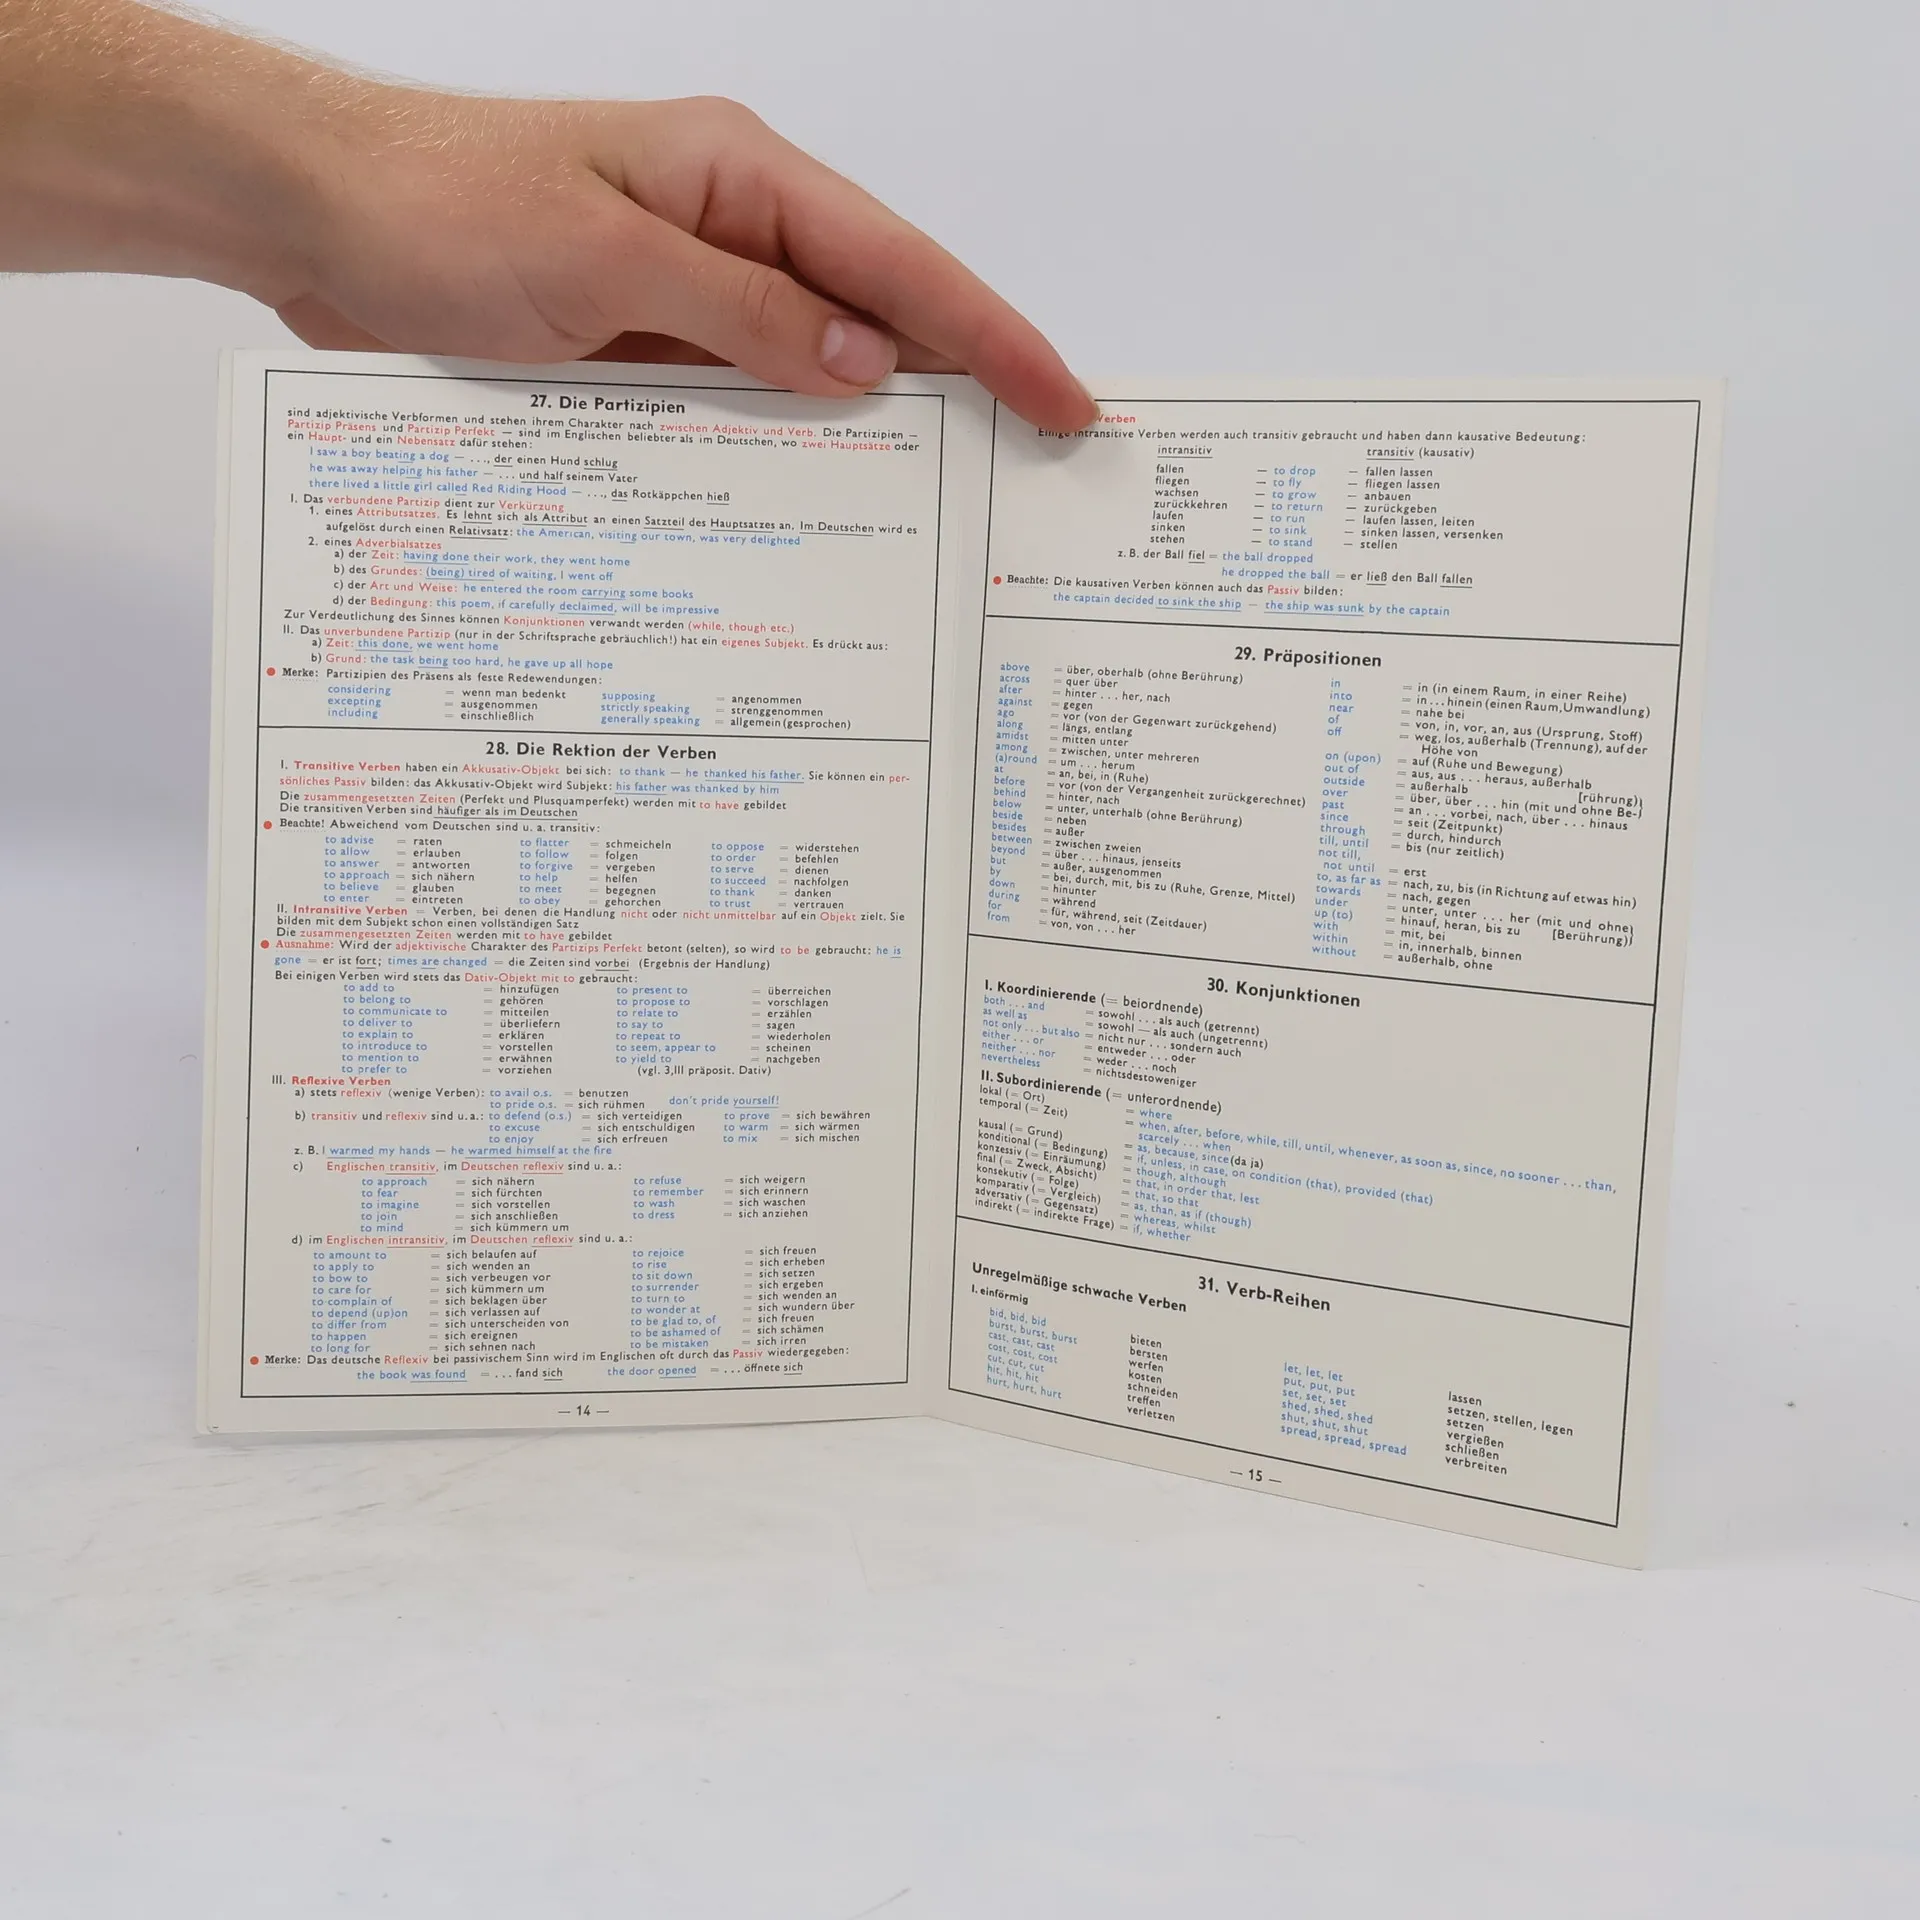 27. Die Partizipien
sind adjektivische Verbformen und stehen ihrem Charakter nach zwischen Adjektiv und Verb. Die Partizipien —
Partizip Präsens und Partizip Perfekt — sind im Englischen beliebter als im Deutschen, wo zwei Hauptsätze oder
ein Haupt- und ein Nebensatz dafür stehen:
I saw a boy beating a dog — ..., der einen Hund schlug
he was away helping his father — ... und half seinem Vater
there lived a little girl called Red Riding Hood — ..., das Rotkäppchen hieß
I. Das verbundene Partizip dient zur Verkürzung
1. eines Attributsatzes. Es lehnt sich als Attribut an einen Satzteil des Hauptsatzes an. Im Deutschen wird es
aufgelöst durch einen Relativsatz: the American, visiting our town, was very delighted
2. eines Adverbialsatzes
a) der Zeit: having done their work, they went home
b) des Grundes: (being) tired of waiting, I went off
c) der Art und Weise: he entered the room carrying some books
d) der Bedingung: this poem, if carefully declaimed, will be impressive
Zur Verdeutlichung des Sinnes können Konjunktionen verwandt werden (while, though etc.)
II. Das unverbundene Partizip (nur in der Schriftsprache gebräuchlich!) hat ein eigenes Subjekt. Es drückt aus:
a) Zeit: this done, we went home
b) Grund: the task being too hard, he gave up all hope
Merke: Partizipien des Präsens als feste Redewendungen:
considering = wenn man bedenkt supposing = angenommen
excepting = ausgenommen strictly speaking = strenggenommen
including = einschließlich generally speaking = allgemein (gesprochen)
28. Die Rektion der Verben
I. Transitive Verben haben ein Akkusativ-Objekt bei sich: to thank — he thanked his father. Sie können ein per-
sönliches Passiv bilden: das Akkusativ-Objekt wird Subjekt: his father was thanked by him
Die zusammengesetzten Zeiten (Perfekt und Plusquamperfekt) werden mit to have gebildet
Die transitiven Verben sind häufiger als im Deutschen
Beachte! Abweichend vom Deutschen sind u. a. transitiv:
to advise = raten to flatter = schmeicheln to oppose = widerstehen
to allow = erlauben to follow = folgen to order = befehlen
to answer = antworten to forgive = vergeben to serve = dienen
to approach = sich nähern to help = helfen to succeed = nachfolgen
to believe = glauben to meet = begegnen to thank = danken
to enter = eintreten to obey = gehorchen to trust = vertrauen
II. Intransitive Verben = Verben, bei denen die Handlung nicht oder nicht unmittelbar auf ein Objekt zielt. Sie
bilden mit dem Subjekt schon einen vollständigen Satz
Die zusammengesetzten Zeiten werden mit to have gebildet
Ausnahme: Wird der adjektivische Charakter des Partizips Perfekt betont (selten), so wird to be gebraucht: he is
gone = er ist fort; times are changed = die Zeiten sind vorbei (Ergebnis der Handlung)
Bei einigen Verben wird stets das Dativ-Objekt mit to gebraucht:
to add to = hinzufügen to present to = überreichen
to belong to = gehören to propose to = vorschlagen
to communicate to = mitteilen to relate to = erzählen
to deliver to = überliefern to say to = sagen
to explain to = erklären to repeat to = wiederholen
to introduce to = vorstellen to seem, appear to = scheinen
to mention to = erwähnen to yield to = nachgeben
to prefer to = vorziehen (vgl. 3,III präposit. Dativ)
III. Reflexive Verben
a) stets reflexiv (wenige Verben): to avail o.s. = benutzen
to pride o.s. = sich rühmen don't pride yourself!
b) transitiv und reflexiv sind u.a.: to defend (o.s.) = sich verteidigen to prove = sich bewähren
to excuse = sich entschuldigen to warm = sich wärmen
to enjoy = sich erfreuen to mix = sich mischen
z. B. I warmed my hands — he warmed himself at the fire
c) Englischen transitiv, im Deutschen reflexiv sind u. a.:
to approach = sich nähern to refuse = sich weigern
to fear = sich fürchten to remember = sich erinnern
to imagine = sich vorstellen to wash = sich waschen
to join = sich anschließen to dress = sich anziehen
to mind = sich kümmern um
d) im Englischen intransitiv, im Deutschen reflexiv sind u. a.:
to amount to = sich belaufen auf to rejoice = sich freuen
to apply to = sich wenden an to rise = sich erheben
to bow to = sich verbeugen vor to sit down = sich setzen
to care for = sich kümmern um to surrender = sich ergeben
to complain of = sich beklagen über to turn to = sich wenden an
to depend (up)on = sich verlassen auf to wonder at = sich wundern über
to differ from = sich unterscheiden von to be glad to, of = sich freuen
to happen = sich ereignen to be ashamed of = sich schämen
to long for = sich sehnen nach to be mistaken = sich irren
Merke: Das deutsche Reflexiv bei passivischem Sinn wird im Englischen oft durch das Passiv wiedergegeben:
the book was found = ... fand sich the door opened = ... öffnete sich
— 14 —
Verben
Einige intransitive Verben werden auch transitiv gebraucht und haben dann kausative Bedeutung:
intransitiv transitiv (kausativ)
fallen — to drop — fallen lassen
fliegen — to fly — fliegen lassen
wachsen — to grow — anbauen
zurückkehren — to return — zurückgeben
laufen — to run — laufen lassen, leiten
sinken — to sink — sinken lassen, versenken
stehen — to stand — stellen
z. B. der Ball fiel = the ball dropped
he dropped the ball = er ließ den Ball fallen
Beachte: Die kausativen Verben können auch das Passiv bilden:
the captain decided to sink the ship — the ship was sunk by the captain
29. Präpositionen
above = über, oberhalb (ohne Berührung)
across = quer über
after = hinter ... her, nach
against = gegen
ago = vor (von der Gegenwart zurückgehend)
along = längs, entlang
amidst = mitten unter
among = zwischen, unter mehreren
(a)round = um ... herum
at = an, bei, in (Ruhe)
before = vor (von der Vergangenheit zurückgerechnet)
behind = hinter, nach
below = unter, unterhalb (ohne Berührung)
beside = neben
besides = außer
between = zwischen zweien
beyond = über ... hinaus, jenseits
but = außer, ausgenommen
by = bei, durch, mit, bis zu (Ruhe, Grenze, Mittel)
down = hinunter
during = während
for = für, während, seit (Zeitdauer)
from = von, von ... her
in = in (in einem Raum, in einer Reihe)
into = in ... hinein (einen Raum, Umwandlung)
near = nahe bei
of = von, in, vor, an, aus (Ursprung, Stoff)
off = weg, los, außerhalb (Trennung), auf der
Höhe von
on (upon) = auf (Ruhe und Bewegung)
out of = aus, aus ... heraus, außerhalb
outside = außerhalb [rührung)
over = über, über ... hin (mit und ohne Be-
past = an ... vorbei, nach, über ... hinaus
since = seit (Zeitpunkt)
through = durch, hindurch
till, until = bis (nur zeitlich)
not till,
not until = erst
to, as far as = nach, zu, bis (in Richtung auf etwas hin)
towards = nach, gegen
under = unter, unter ... her (mit und ohne
up (to) = hinauf, heran, bis zu [Berührung)
with = mit, bei
within = in, innerhalb, binnen
without = außerhalb, ohne
30. Konjunktionen
I. Koordinierende (= beiordnende)
both ... and = sowohl ... als auch (getrennt)
as well as = sowohl — als auch (ungetrennt)
not only ... but also = nicht nur ... sondern auch
either ... or = entweder ... oder
neither ... nor = weder ... noch
nevertheless = nichtsdestoweniger
II. Subordinierende (= unterordnende)
lokal (= Ort) = where
temporal (= Zeit) = when, after, before, while, till, until, whenever, as soon as, since, no sooner ... than,
scarcely ... when
kausal (= Grund) = as, because, since (da ja)
konditional (= Bedingung) = if, unless, in case, on condition (that), provided (that)
konzessiv (= Einräumung) = though, although
final (= Zweck, Absicht) = that, in order that, lest
konsekutiv (= Folge) = that, so that
komparativ (= Vergleich) = as, than, as if (though)
adversativ (= Gegensatz) = whereas, whilst
indirekt (= indirekte Frage) = if, whether
31. Verb-Reihen
Unregelmäßige schwache Verben
I. einförmig
bid, bid, bid bieten
burst, burst, burst bersten
cast, cast, cast werfen
cost, cost, cost kosten
cut, cut, cut schneiden
hit, hit, hit treffen
hurt, hurt, hurt verletzen
let, let, let lassen
put, put, put setzen, stellen, legen
set, set, set setzen
shed, shed, shed vergießen
shut, shut, shut schließen
spread, spread, spread verbreiten
— 15 —